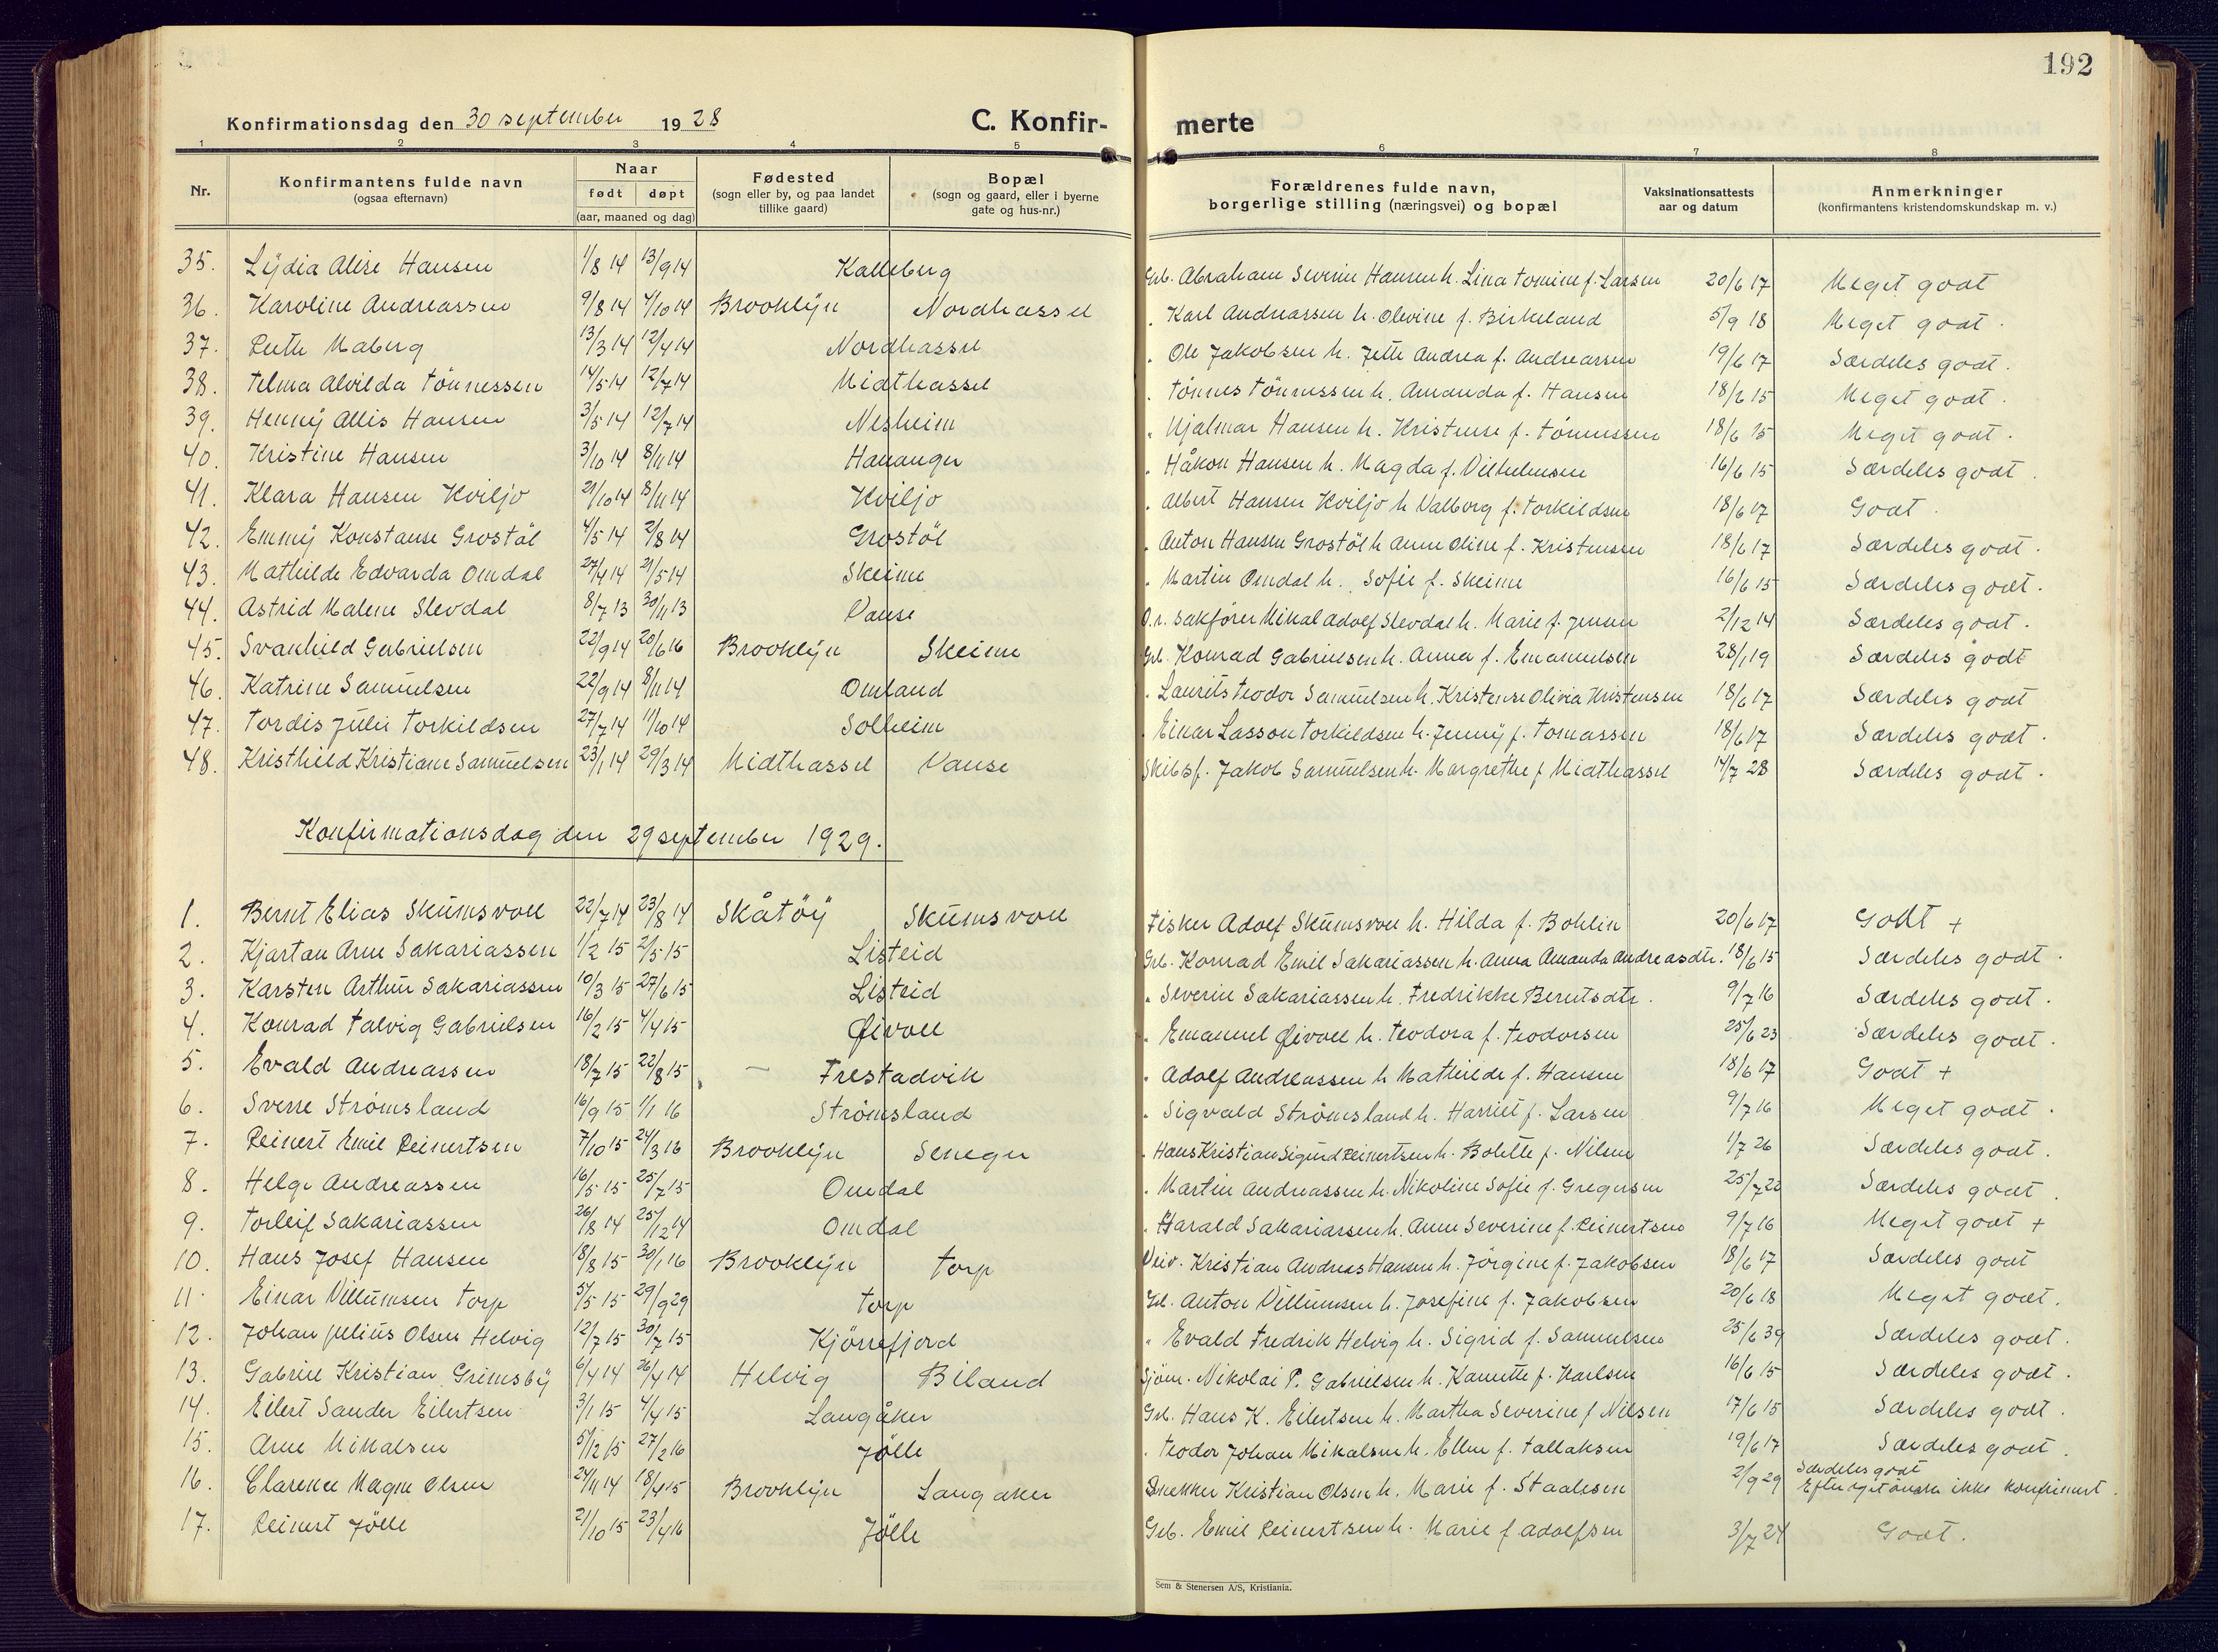 192
Konfirmationsdag den 30 september 1928
C. Konfirmerte
1 2 3 4 5 6 7 8
Nr.
Konfirmantens fulde navn
(ogsaa efternavn)
Naar
født døpt
(aar, maaned og dag)
Fødested
(sogn eller by, og paa landet
tillike gaard)
Bopæl
(sogn og gaard, eller i byerne
gate og hus-nr.)
Forældrenes fulde navn,
borgerlige stilling (næringsvei) og bopæl
Vaksinationsattests
aar og datum
Anmerkninger
(konfirmantens kristendomskundskap m. v.)
35. Lydia Alise Hansen 1/8 14 13/9 14 Kalleberg Grb. Abraham Severin Hansen h. Lina Tomine f. Larsen 20/6 17 Meget godt
36. Karoline Andreassen 9/8 14 4/10 14 Brooklyn Nordhassel Karl Andreassen h. Olevine f. Birkeland 5/9 18 Meget godt.
37. Ruth Maberg 13/3 14 12/4 14 Nordhassel Ole Jakobsen h. Jette Andrea f. Andreassen 19/6 17 Særdeles godt.
38. Telma Alvilda Tönnessen 14/5 14 12/7 14 Midthassel Tönnes Tönnessen h. Amanda f. Hansen 18/6 15 Meget godt.
39. Henny Allis Hansen 3/5 14 12/7 14 Nesheim Hjalmar Hansen h. Kristense f. Tönnessen 18/6 15 Meget godt.
40. Kristine Hansen 3/10 14 8/11 14 Hananger Håkon Hansen h. Magda f. Vilhelmsen 16/6 15 Særdeles godt.
41. Klara Hansen Kviljo 21/10 14 8/11 14 Kviljo Albert Hansen Kviljo h Valborg f. Torkildsen 18/6 17 Godt.
42. Emmy Konstanse Grostöl 4/5 14 2/8 14 Grostöl Anton Hansen Grostöl h Anne Oline f. Kristensen 18/6 17 Særdeles godt.
43. Mathilde Edvarda Omdal 27/4 14 21/5 14 Skeime Martin Omdal h. Sofie f. Skeime 16/6 15 Særdeles godt.
44. Astrid Malene Slevdal 8/7 13 30/11 13 Vanse O.r. sakfører Mikal Adolf Slevdal h. Marie f. Jensen 2/12 14 Særdeles godt.
45. Svanhild Gabrielsen 22/9 14 20/6 16 Brooklyn Skeime Grb. Konrad Gabrielsen h. Anna f. Emanuelsen 28/1 19 Særdeles godt
46. Katrine Samuelsen 22/9 14 8/11 14 Omland Laurits Teodor Samuelsen h. Kristense Olivia Kristensen 18/6 17 Særdeles godt
47. Tordis Julie Torkildsen 27/7 14 11/10 14 Solheim Einar Lasson Torkildsen h. Jenny f. Tomassen 18/6 17 Særdeles godt.
48. Kristhild Kristiane Samuelsen 23/1 14 29/3 14 Midthassel Vanse Skibsf. Jakob Samuelsen h. Margrethe f Midthassel 14/7 28 Særdeles godt.
Konfirmationsdag den 29 september 1929.
1. Bernt Elias Skumsvoll 22/7 14 23/8 14 Skåtöy Skumsvoll Fisker Adolf Skumsvoll h. Hilda f. Bohlin 20/6 17 Godt +
2. Kjartan Arne Sakariassen 1/2 15 2/5 15 Listeid Grb. Konrad Emil Sakariassen h. Anna Amanda Andreasdtr. 18/6 15 Særdeles godt.
3. Karsten Arthur Sakariassen 10/3 15 27/6 15 Listeid Severin Sakariassen h. Fredrikke Berntsdtr. 9/7 16 Særdeles godt.
4. Konrad Talvig Gabrielsen 16/2 15 4/4 15 Øivoll Emanuel Øivoll h. Teodora f. Teodorsen 25/6 23 Særdeles godt.
5. Evald Andreassen 18/7 15 22/8 15 — Frestadvik Adolf Andreassen h Mathilde f. Hansen 18/6 17 Godt +
6. Sverre Strömsland 16/9 15 1/1 16 Strömsland Sigvald Strömsland h. Harriet f. Larsen 9/7 16 Meget godt.
7. Reinert Emil Reinertsen 7/10 15 24/3 16 Brooklyn Seneger Hans Kristian Sigurd Reinertsen h. Bolette f. Nilsen 1/7 26 Særdeles godt.
8. Helge Andreassen 16/5 15 25/7 15 Omdal Martin Andreassen h. Nikoline Sofie f. Gregersen 25/7 22 Særdeles godt.
9. Torleif Sakariassen 26/8 14 25/12 14 Omdal Harald Sakariassen h. Anne Severine f. Reinertsen 9/7 16 Meget godt +
10. Hans Josef Hansen 18/8 15 30/1 16 Brooklyn Torp Kristian Andreas Hansen h. Jörgine f. Jakobsen 18/6 17 Særdeles godt
11. Einar Villumsen Torp 5/5 15 29/9 29 Torp Grb. Anton Villumsen h. Josefine f. Jakobsen 20/6 18 Meget godt.
12. Johan Julius Olsen Helvig 12/7 15 30/7 15 Kjörrefjord Evald Fredrik Helvig h. Sigrid f. Samuelsen 25/6 39 Særdeles godt.
13. Gabriel Kristian Grimsby 6/4 14 26/4 14 Helvig Biland Sjöm. Nikolai P. Gabrielsen h. Kanutte f. Karlsen 16/6 15 Særdeles godt.
14. Eilert Sander Eilertsen 3/1 15 4/4 15 Langåker Grb. Hans K. Eilertsen h. Martha Severine f Nilsen 17/6 15 Særdeles godt.
15. Arne Mikalsen 5/12 15 27/2 16 Jölle Teodor Johan Mikalsen h. Ellen f. Tallaksen 19/6 17 Særdeles godt.
16. Clarence Magne Olsen 24/11 14 18/4 15 Brooklyn Langåker Snekker Kristian Olsen h. Marie f. Staalesen 2/9 29 Særdeles godt
Efter eget önske ikke konfirmert.
17. Reinert Jölle 21/10 15 23/4 16 Jölle Grb. Emil Reinertsen h. Marie f Adolfsen 3/7 24 Godt.
Sem & Stenersen A/S, Kristiania.